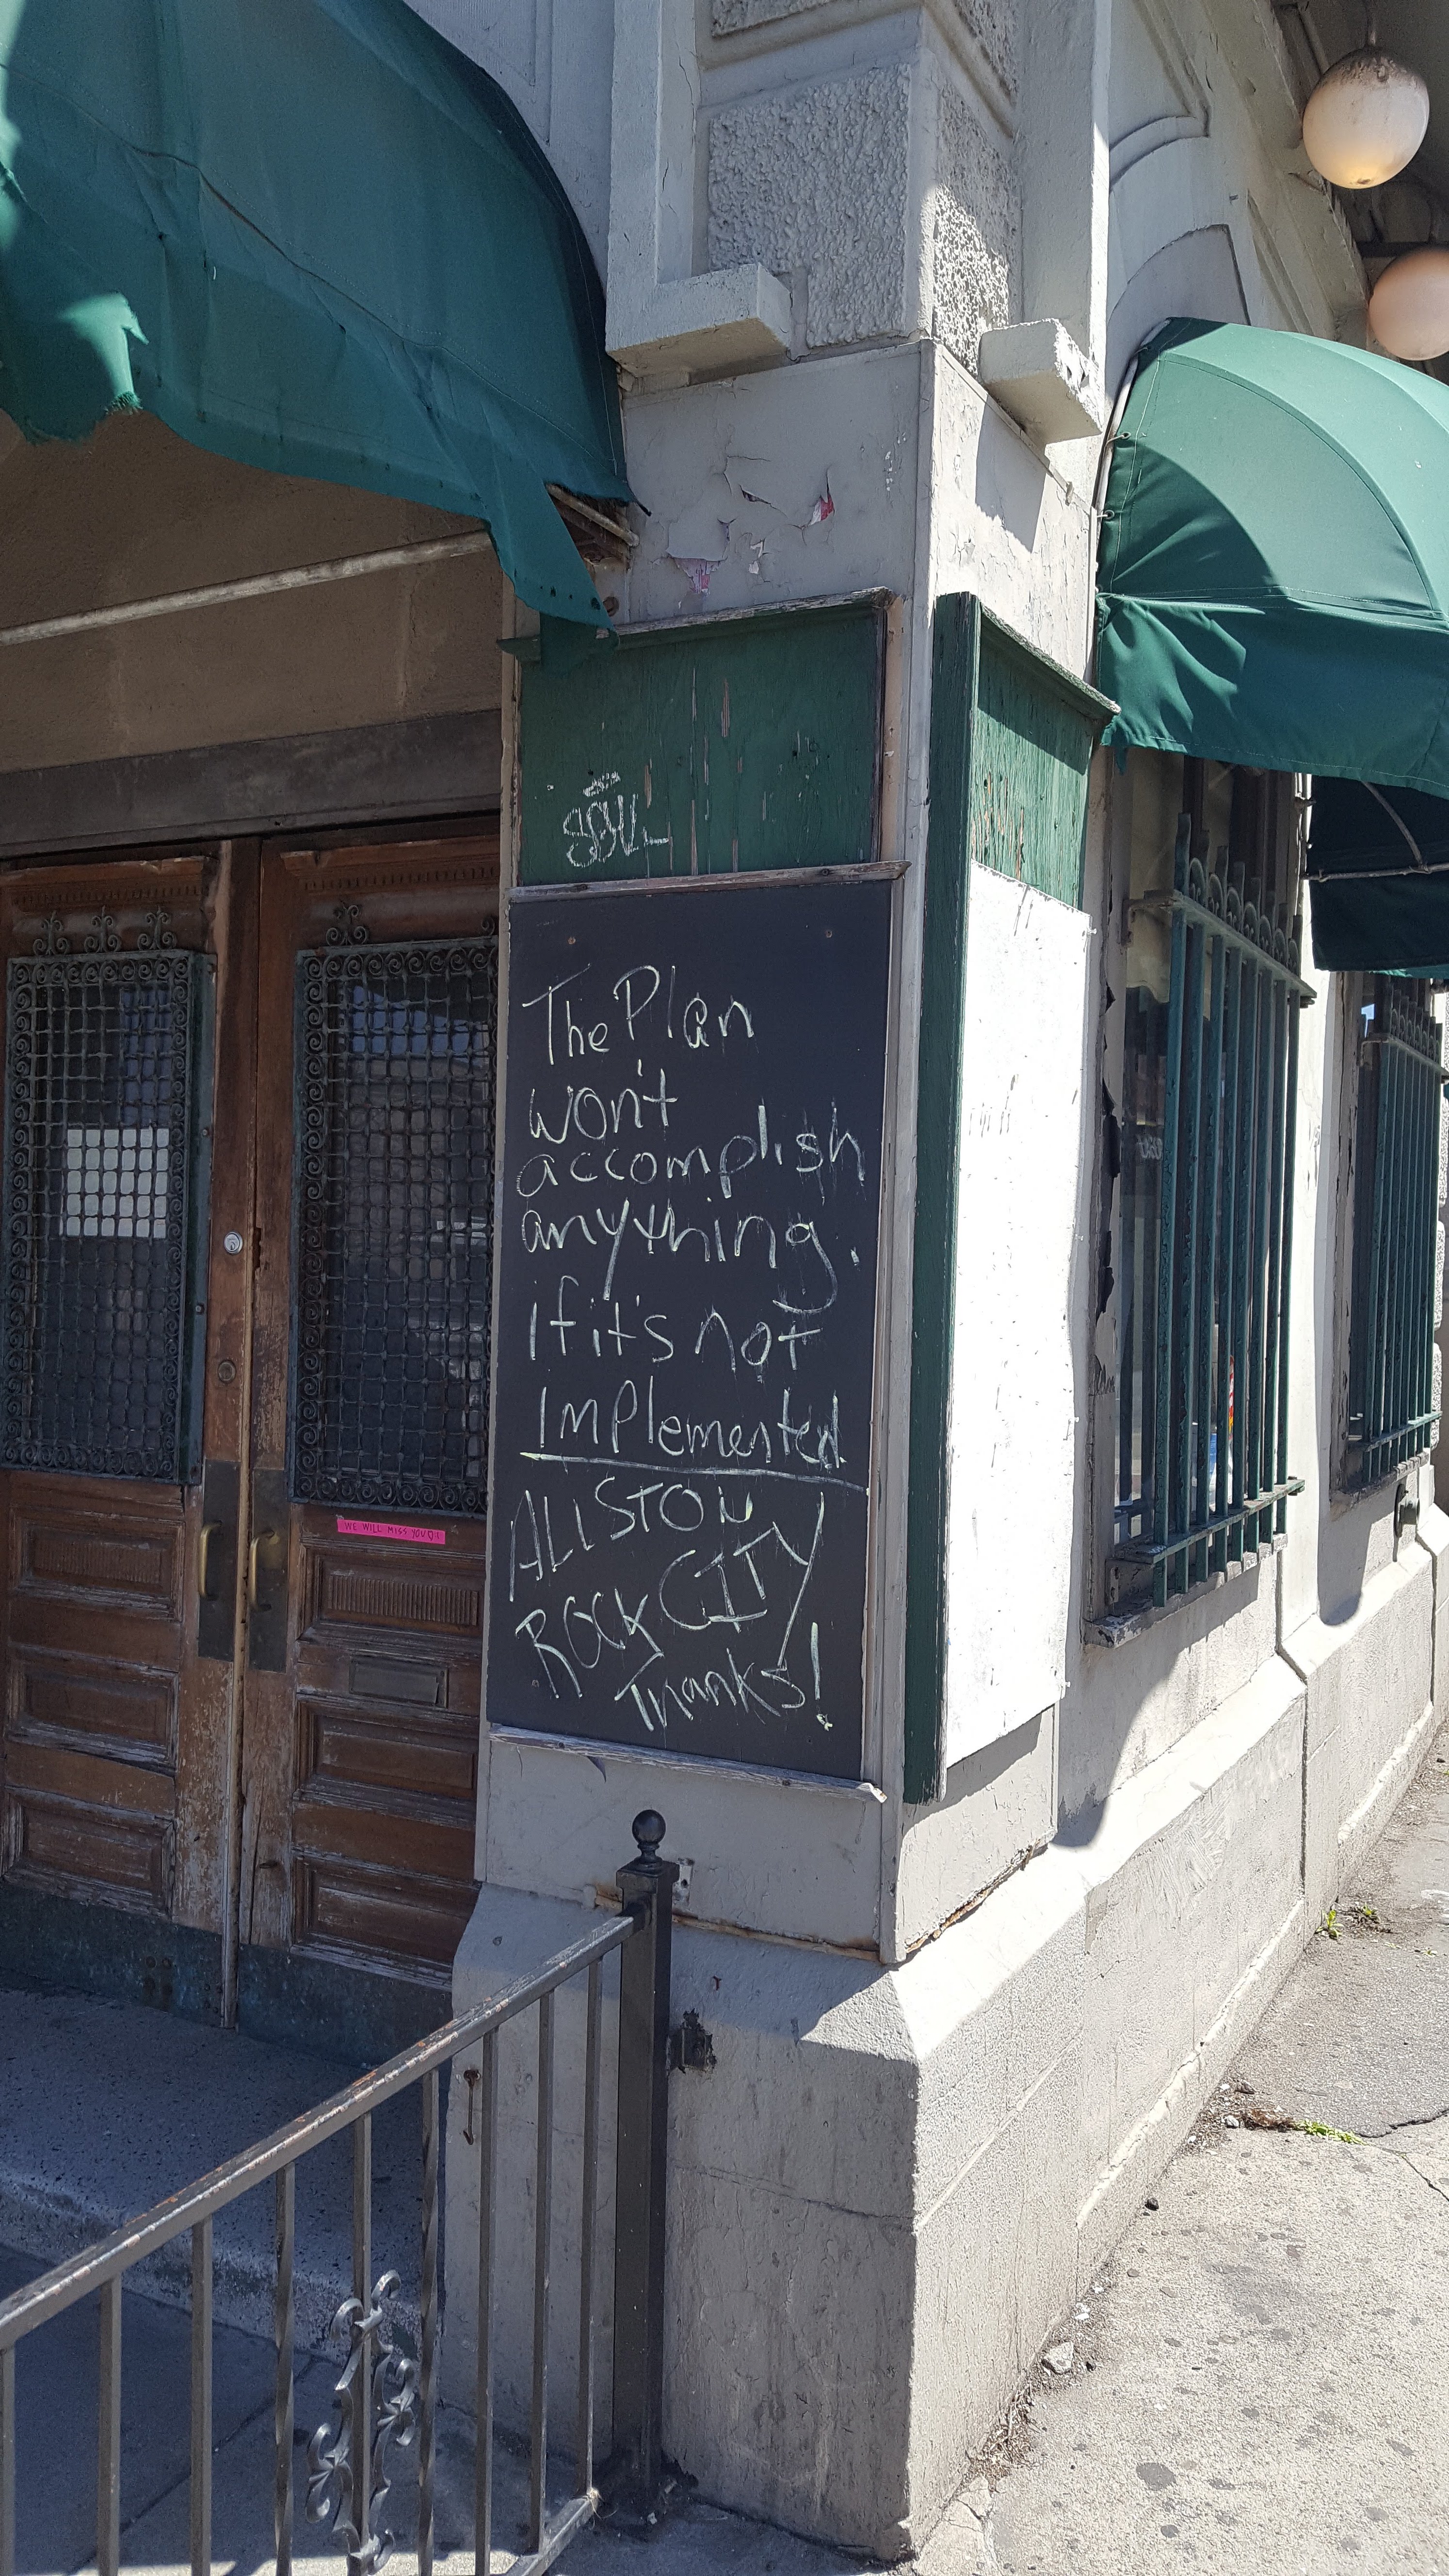 SOUL
The Plan
won't
accomplish
anything.
if it's not
Implemented
ALLSTON
ROCK CITY
Thanks!
WE WILL MISS YOU